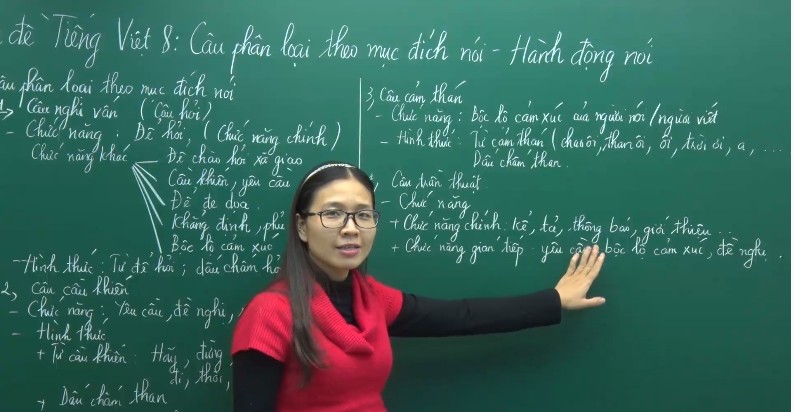 đề Tiếng Việt 8: Câu phân loại theo mục đích nói - Hành động nói
câu phân loại theo mục đích nói
1, Câu nghi vấn (Câu hỏi)
- Chức năng: Để hỏi, (Chức năng chính)
Chức năng khác
Để chào hỏi xã giao
Cầu khiến, yêu cầu
Để đe dọa
Khẳng định, phủ
Bộc lộ cảm xúc
- Hình thức: Từ để hỏi; dấu chấm hỏ
2, Câu cầu khiến
- Chức năng: Yêu cầu, đề nghị,
- Hình thức
+ Từ cầu khiến: Hãy, đừng
đi, thôi,
+ Dấu chấm than
3, Câu cảm thán
- Chức năng: Bộc lộ cảm xúc của người nói/người viết
- Hình thức: Từ cảm thán (chao ôi, than ôi, ôi, trời ơi, a, ...
Dấu chấm than.
, Câu trần thuật
- Chức năng
+ Chức năng chính: Kể, tả, thông báo, giới thiệu...
+ Chức năng gián tiếp: yêu cầ bộc lộ cảm xúc, đề nghị...